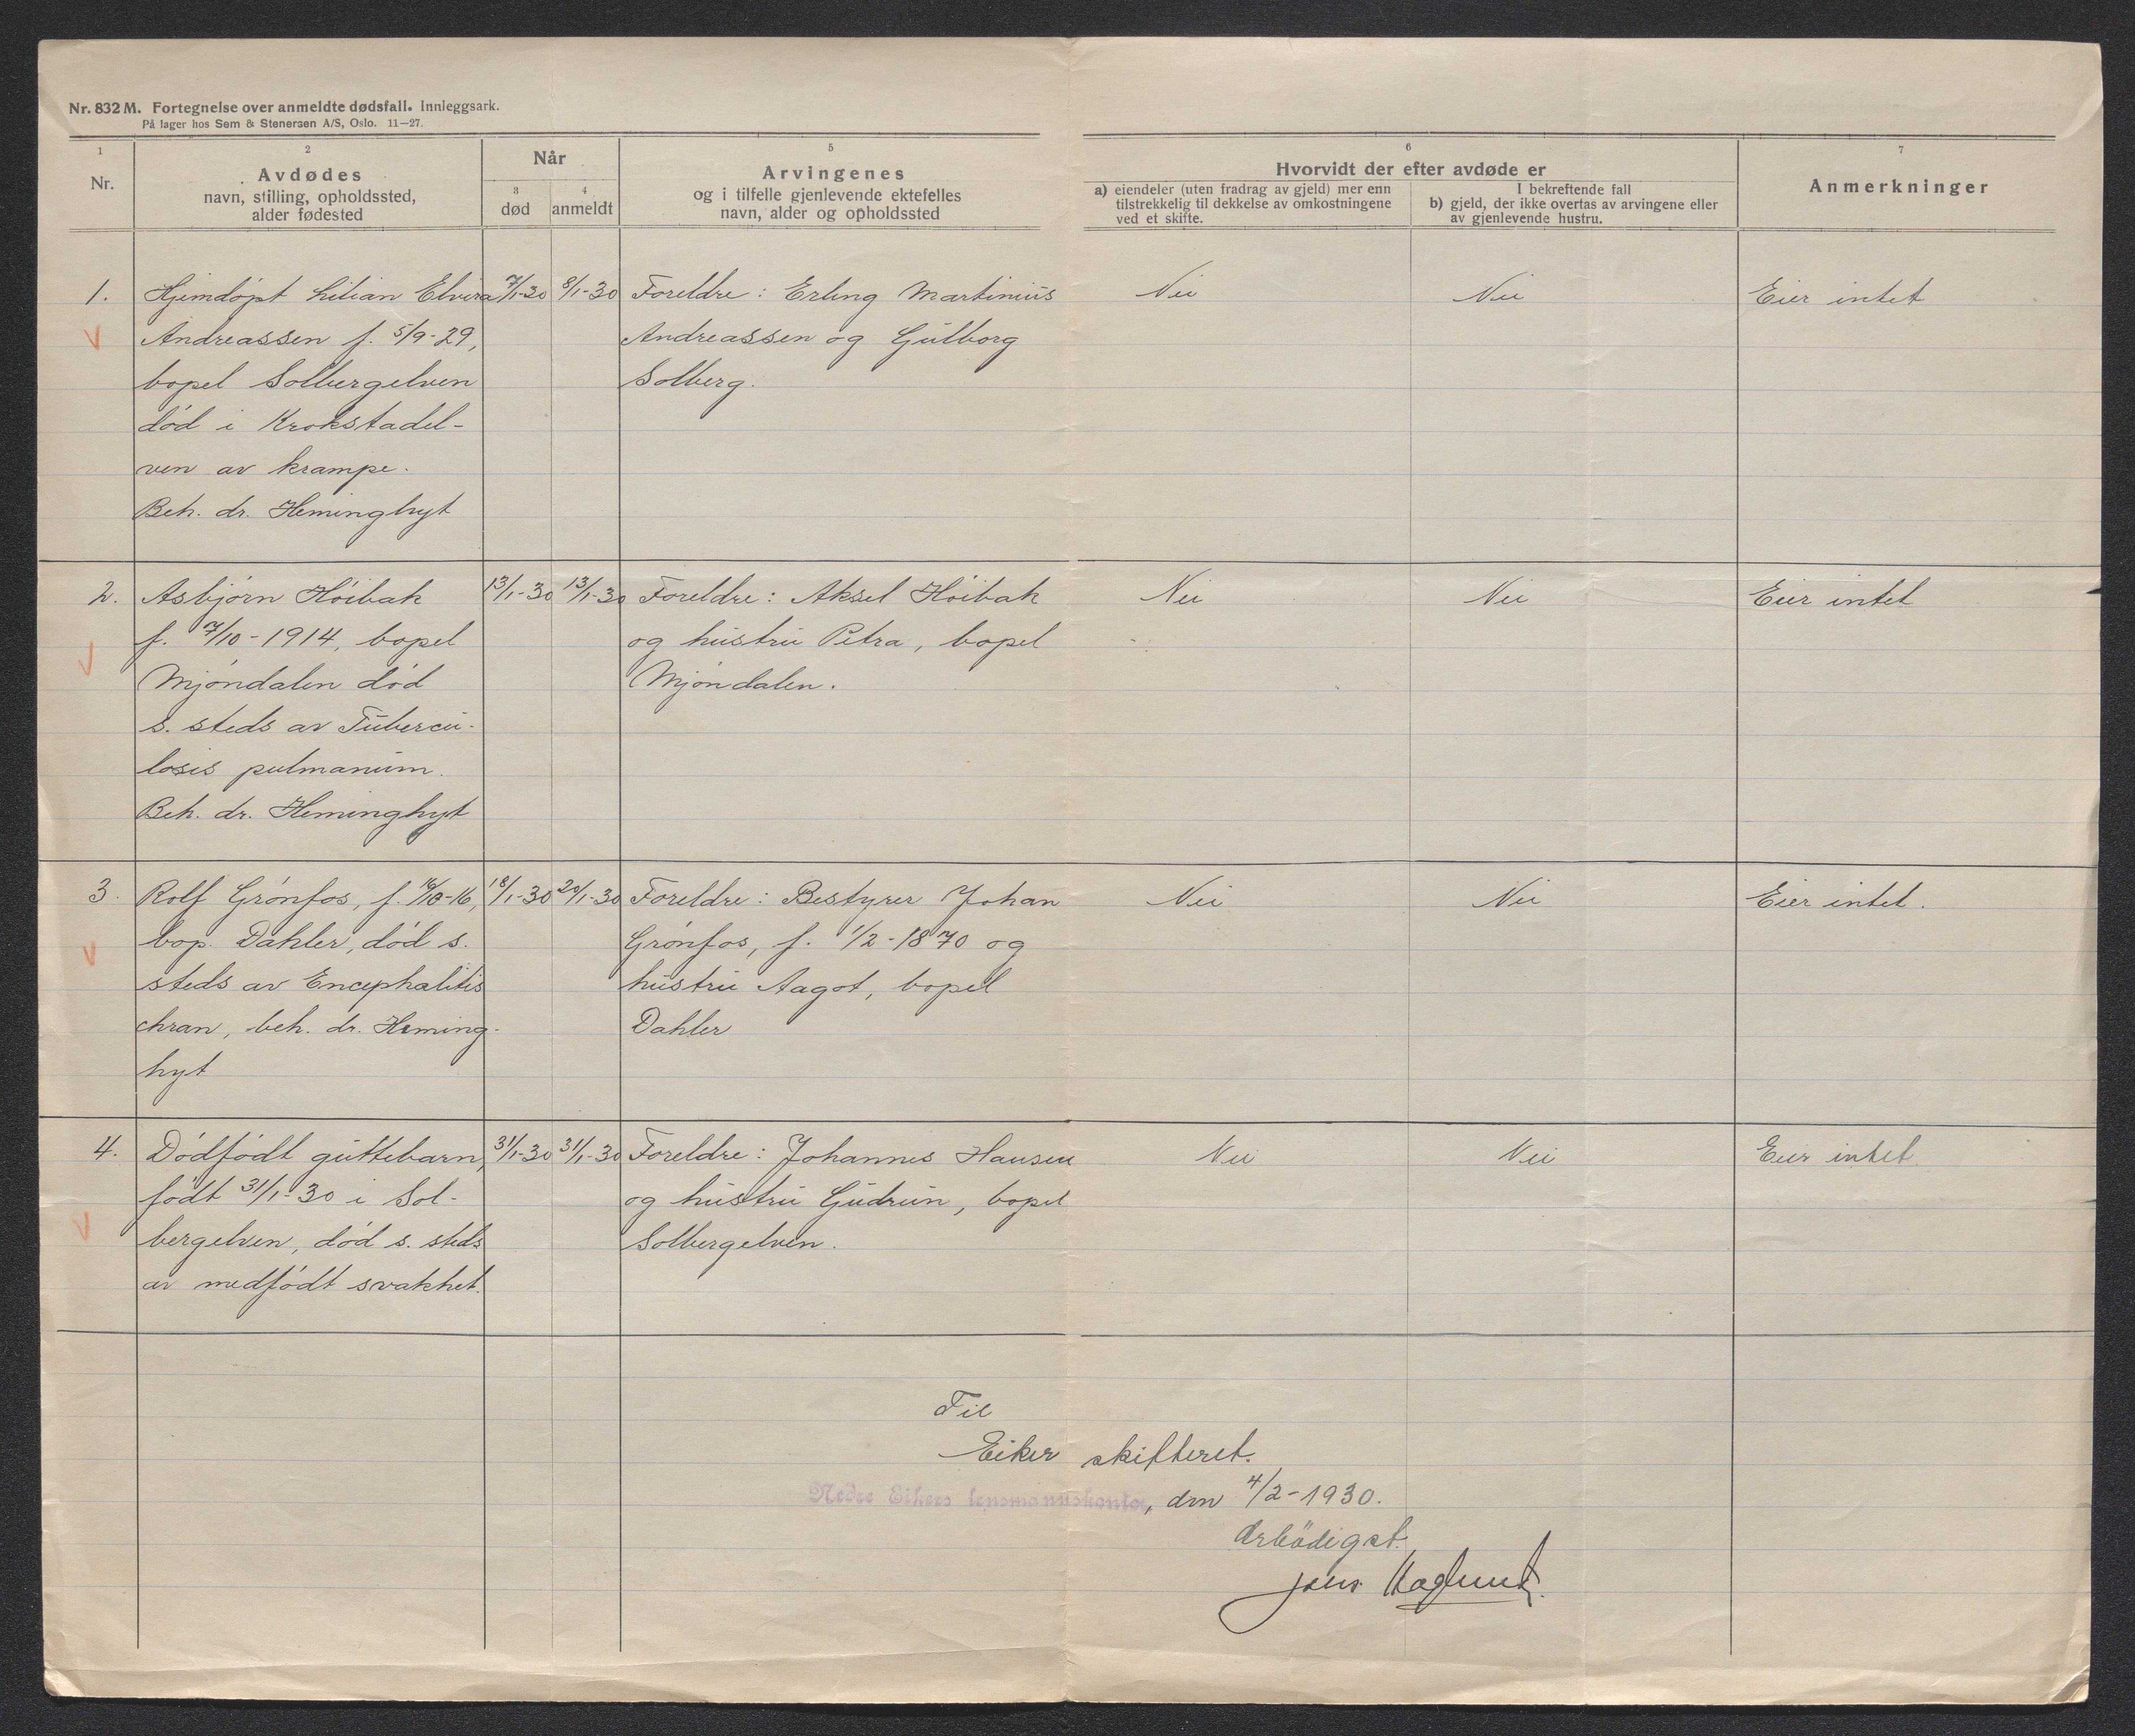 Nr. 832 M. Fortegnelse over anmeldte dødsfall. Innleggsark.
På lager hos Sem & Stenersen A/S, Oslo. 11—27.
1
Nr.
2
Avdødes
navn, stilling, opholdssted,
alder fødested
Når
3
død
4
anmeldt
5
Arvingenes
og i tilfelle gjenlevende ektefelles
navn, alder og opholdssted
6
Hvorvidt der efter avdøde er
a) eiendeler (uten fradrag av gjeld) mer enn
tilstrekkelig til dekkelse av omkostningene
ved et skifte.
I bekreftende fall
b) gjeld, der ikke overtas av arvingene eller
av gjenlevende hustru.
7
Anmerkninger
1. Hjemdøpt Lilian Elvira 7/1-30 8/1-30 Foreldre: Erling Martinius Nei Nei Eier intet
Andreassen f. 5/9-29, Andreassen og Gulborg
bopel Solbergelven Solberg.
død i Krokstadel-
ven av krampe.
Beh. dr. Heminghyt
2. Asbjørn Høibak 13/1-30 13/1-30 Foreldre: Aksel Høibak Nei Nei Eier intet
f. 7/10-1914, bopel og hustru Petra, bopel
Mjøndalen død Mjøndalen.
s. steds av Tubercu-
losis pulmanum.
Beh. dr. Heminghyt
3. Rolf Grønfos, f. 16/10-16, 18/1-30 20/1-30 Foreldre: Bestyrer Johan Nei Nei Eier intet.
bop. Dahler, død s. Grønfos, f. 1/2-1870 og
steds av Encephalitis hustru Aagot, bopel
chran, beh. dr. Heming- Dahler
hyt
4. Dødfødt guttebarn, 31/1-30 31/1-30 Foreldre: Johannes Hansen Nei Nei Eier intet
født 31/1-30 i Sol- og hustru Gudrun, bopel
bergelven, død s. steds Solbergelven.
av medfødt svakhet.
Til
Eiker skifteret.
Nedre Eikers lensmannskontor, den 4/2-1930.
Ærbödigst.
Jens Haglund.